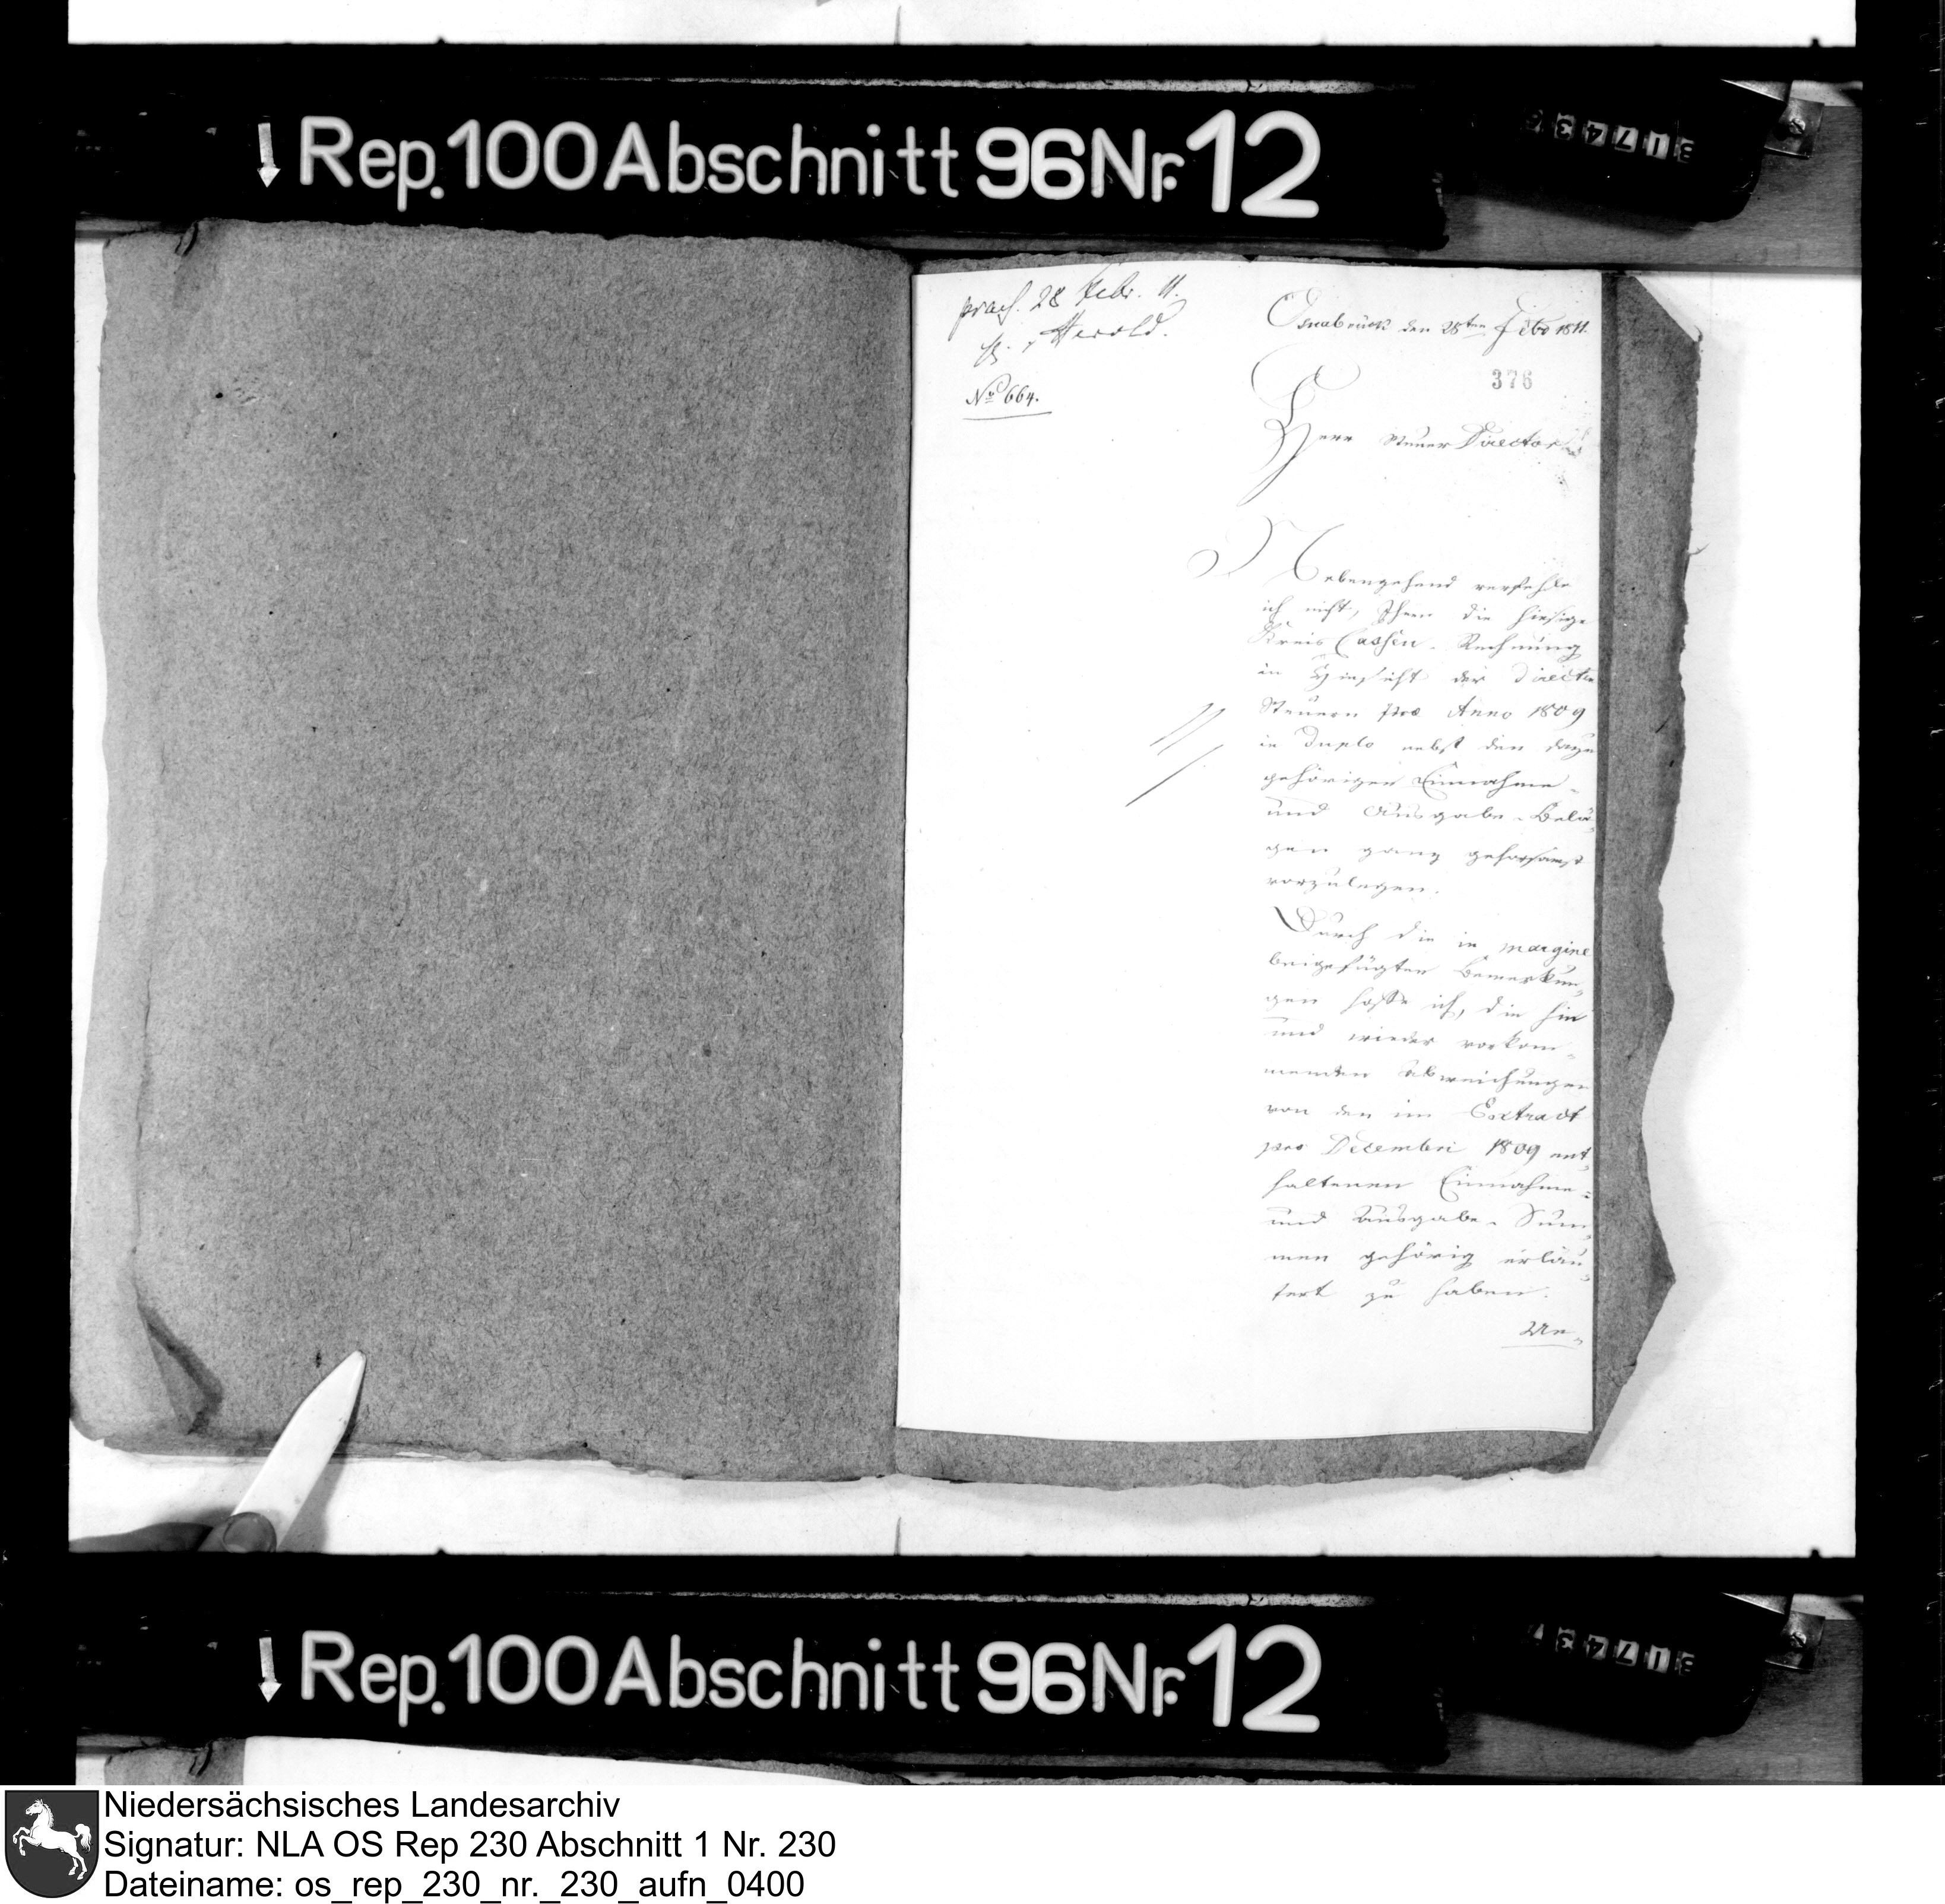 Rep. 100 Abschnitt 96 Nr. 12
praes. 28 Febr. 11.
Herold.
No 664.
Osnabrück den 28ten Febr 1811.
376
Herr Steuer Director
Nebengehend verfehle
ich nicht, Ihnen die hiesige
Kreis Cassen-Rechnung
in Hinsicht der directen
Steuern pro Anno 1809
in Duplo nebst den dazu
gehörigen Einnahme-
und Ausgabe-Belä-
gen ganz gehorsamst
vorzulegen.
Durch die in margine
beigefügten Bemerkun-
gen hoffe ich, die hin
und wieder vorkom-
menden Abweichungen
von den im Extract
pro Decembri 1809 ent-
haltenen Einnahme-
und Ausgabe-Sum-
men gehörig erläu-
tert zu haben.
Rep. 100 Abschnitt 96 Nr. 12
Niedersächsisches Landesarchiv
Signatur: NLA OS Rep 230 Abschnitt 1 Nr. 230
Dateiname: os_rep_230_nr._230_aufn_0400